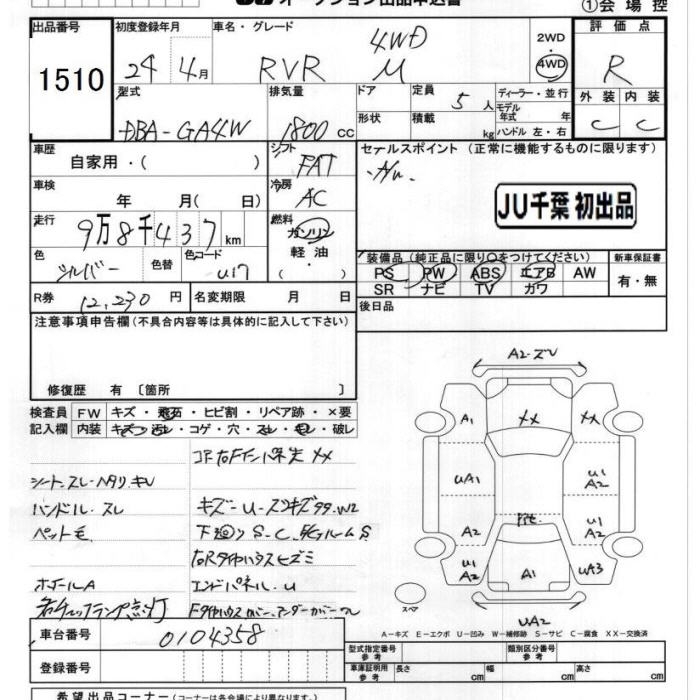 オークション出品申込書
①会場控
出品番号 1510
初度登録年月 24 4月
車名・グレード RVR 4WD M
2WD 4WD
評価点 R
型式 DBA-GA4W
排気量 1800 cc
ドア
形状
定員 5人
積載 kg
ディーラー・並行
モデル年式 年
ハンドル 左・右
外装 C
内装 C
車歴 自家用・( )
シフト FAT
セールスポイント (正常に機能するものに限ります)
JU千葉 初出品
車検 年 月( 日)
冷房 AC
走行 9万8千437 km
燃料 ガソリン・軽油・( )
色 シルバー
色替
カラーコード U17
装備品 (純正品に限り○をつけてください)
PS PW ABS エアB AW
SR ナビ TV カワ
新車保証書 有・無
R券 12,230 円
名変期限 月 日
後日品
注意事項申告欄 (不具合内容等は具体的に記入して下さい)
修復歴 有 〔箇所 〕
検査員記入欄
FW キズ・飛石・ヒビ割・リペア跡・×要
内装 キズ・汚レ・コゲ・穴・スレ・モレ・破レ
コア右Fインパネ XX
シートスレ・ヘタリ・キレ
ハンドル・スレ
キズ-U-スリキズ多々.W2
ペット毛
下廻り S-C.
ルームS
右Rタイヤハウスヒズミ
ホイールA
エンドパネル.U
チェックランプ点灯
Fタイヤハウスカバー、アンダーカバーワレ
A2.ズレ
A1
XX
XX
UA1
U1
A2
Pit.
A2
U1
A2
U1
A2
A1
UA3
UA2
スペア
A-キズ E-エクボ U-凹み W-補修跡 S-サビ C-腐食 XX-交換済
車台番号 0104358
登録番号
型式指定番号 参考
類別区分番号 参考
車庫証明用 参考
長さ cm
幅 cm
高さ cm
希望出品コーナー (コーナーは各会場により異なります)